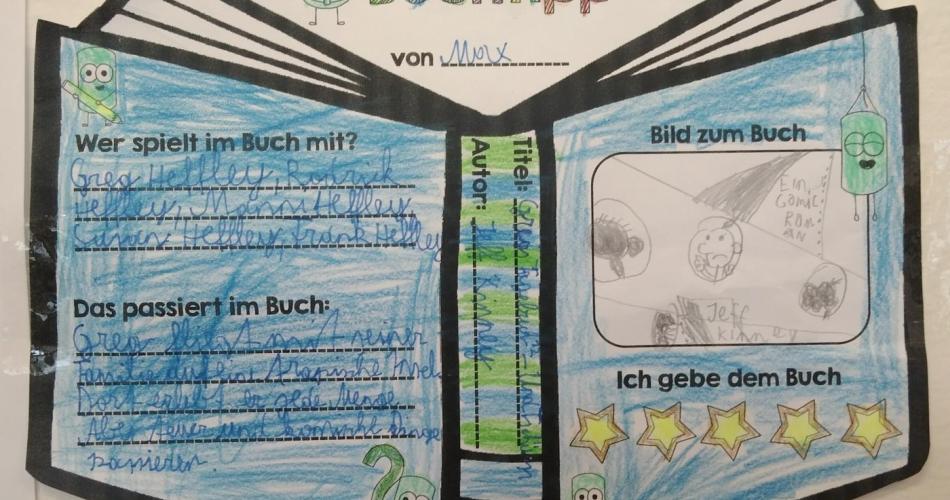 Buchtipp
von Max
Wer spielt im Buch mit?
Greg Heffley, Rodrick
Heffley, Manni Heffley
Susan Heffley, Frank Heffley
Das passiert im Buch:
Greg fliegt mit seiner
Familie auf eine tropische Insel
Dort erlebt er jede Menge
Abenteuer und komische Dinge
passieren.
Titel: Gregs Tagebuch
Autor: Jeff Kinney
Bild zum Buch
EIN
COMIC
ROM
AN
Jeff
Kinney
Ich gebe dem Buch